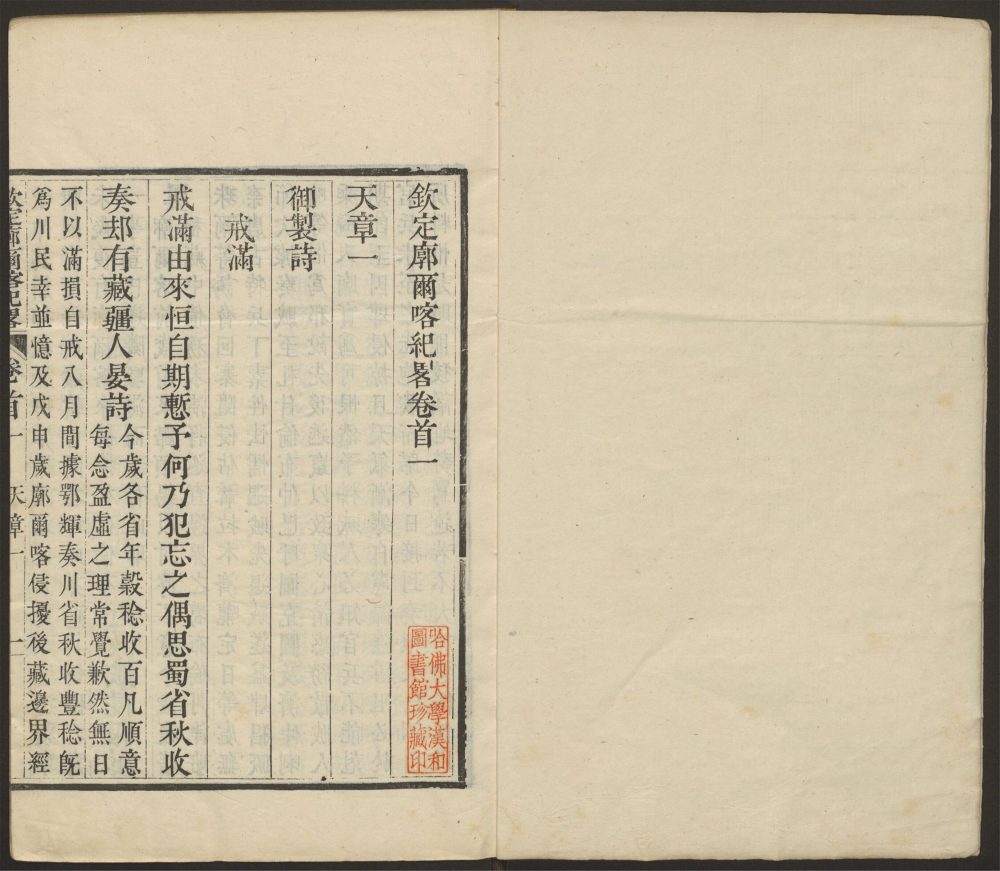 欽定廓爾喀紀畧卷首一
天章一
御製詩
戒滿
戒滿由來恒自期慙予何乃犯忘之偶思蜀省秋收
奏却有藏疆人晏詩
今歲各省年穀稔收百凡順意
每念盈虛之理常覺歉然無日
不以滿損自戒八月間據鄂輝奏川省秋收豐稔旣
爲川民幸並憶及戊申歲廓爾喀侵擾後藏邊界經
欽定廓爾喀紀畧
卷首一
天章一
一
哈佛大學漢和
圖書館珍藏印